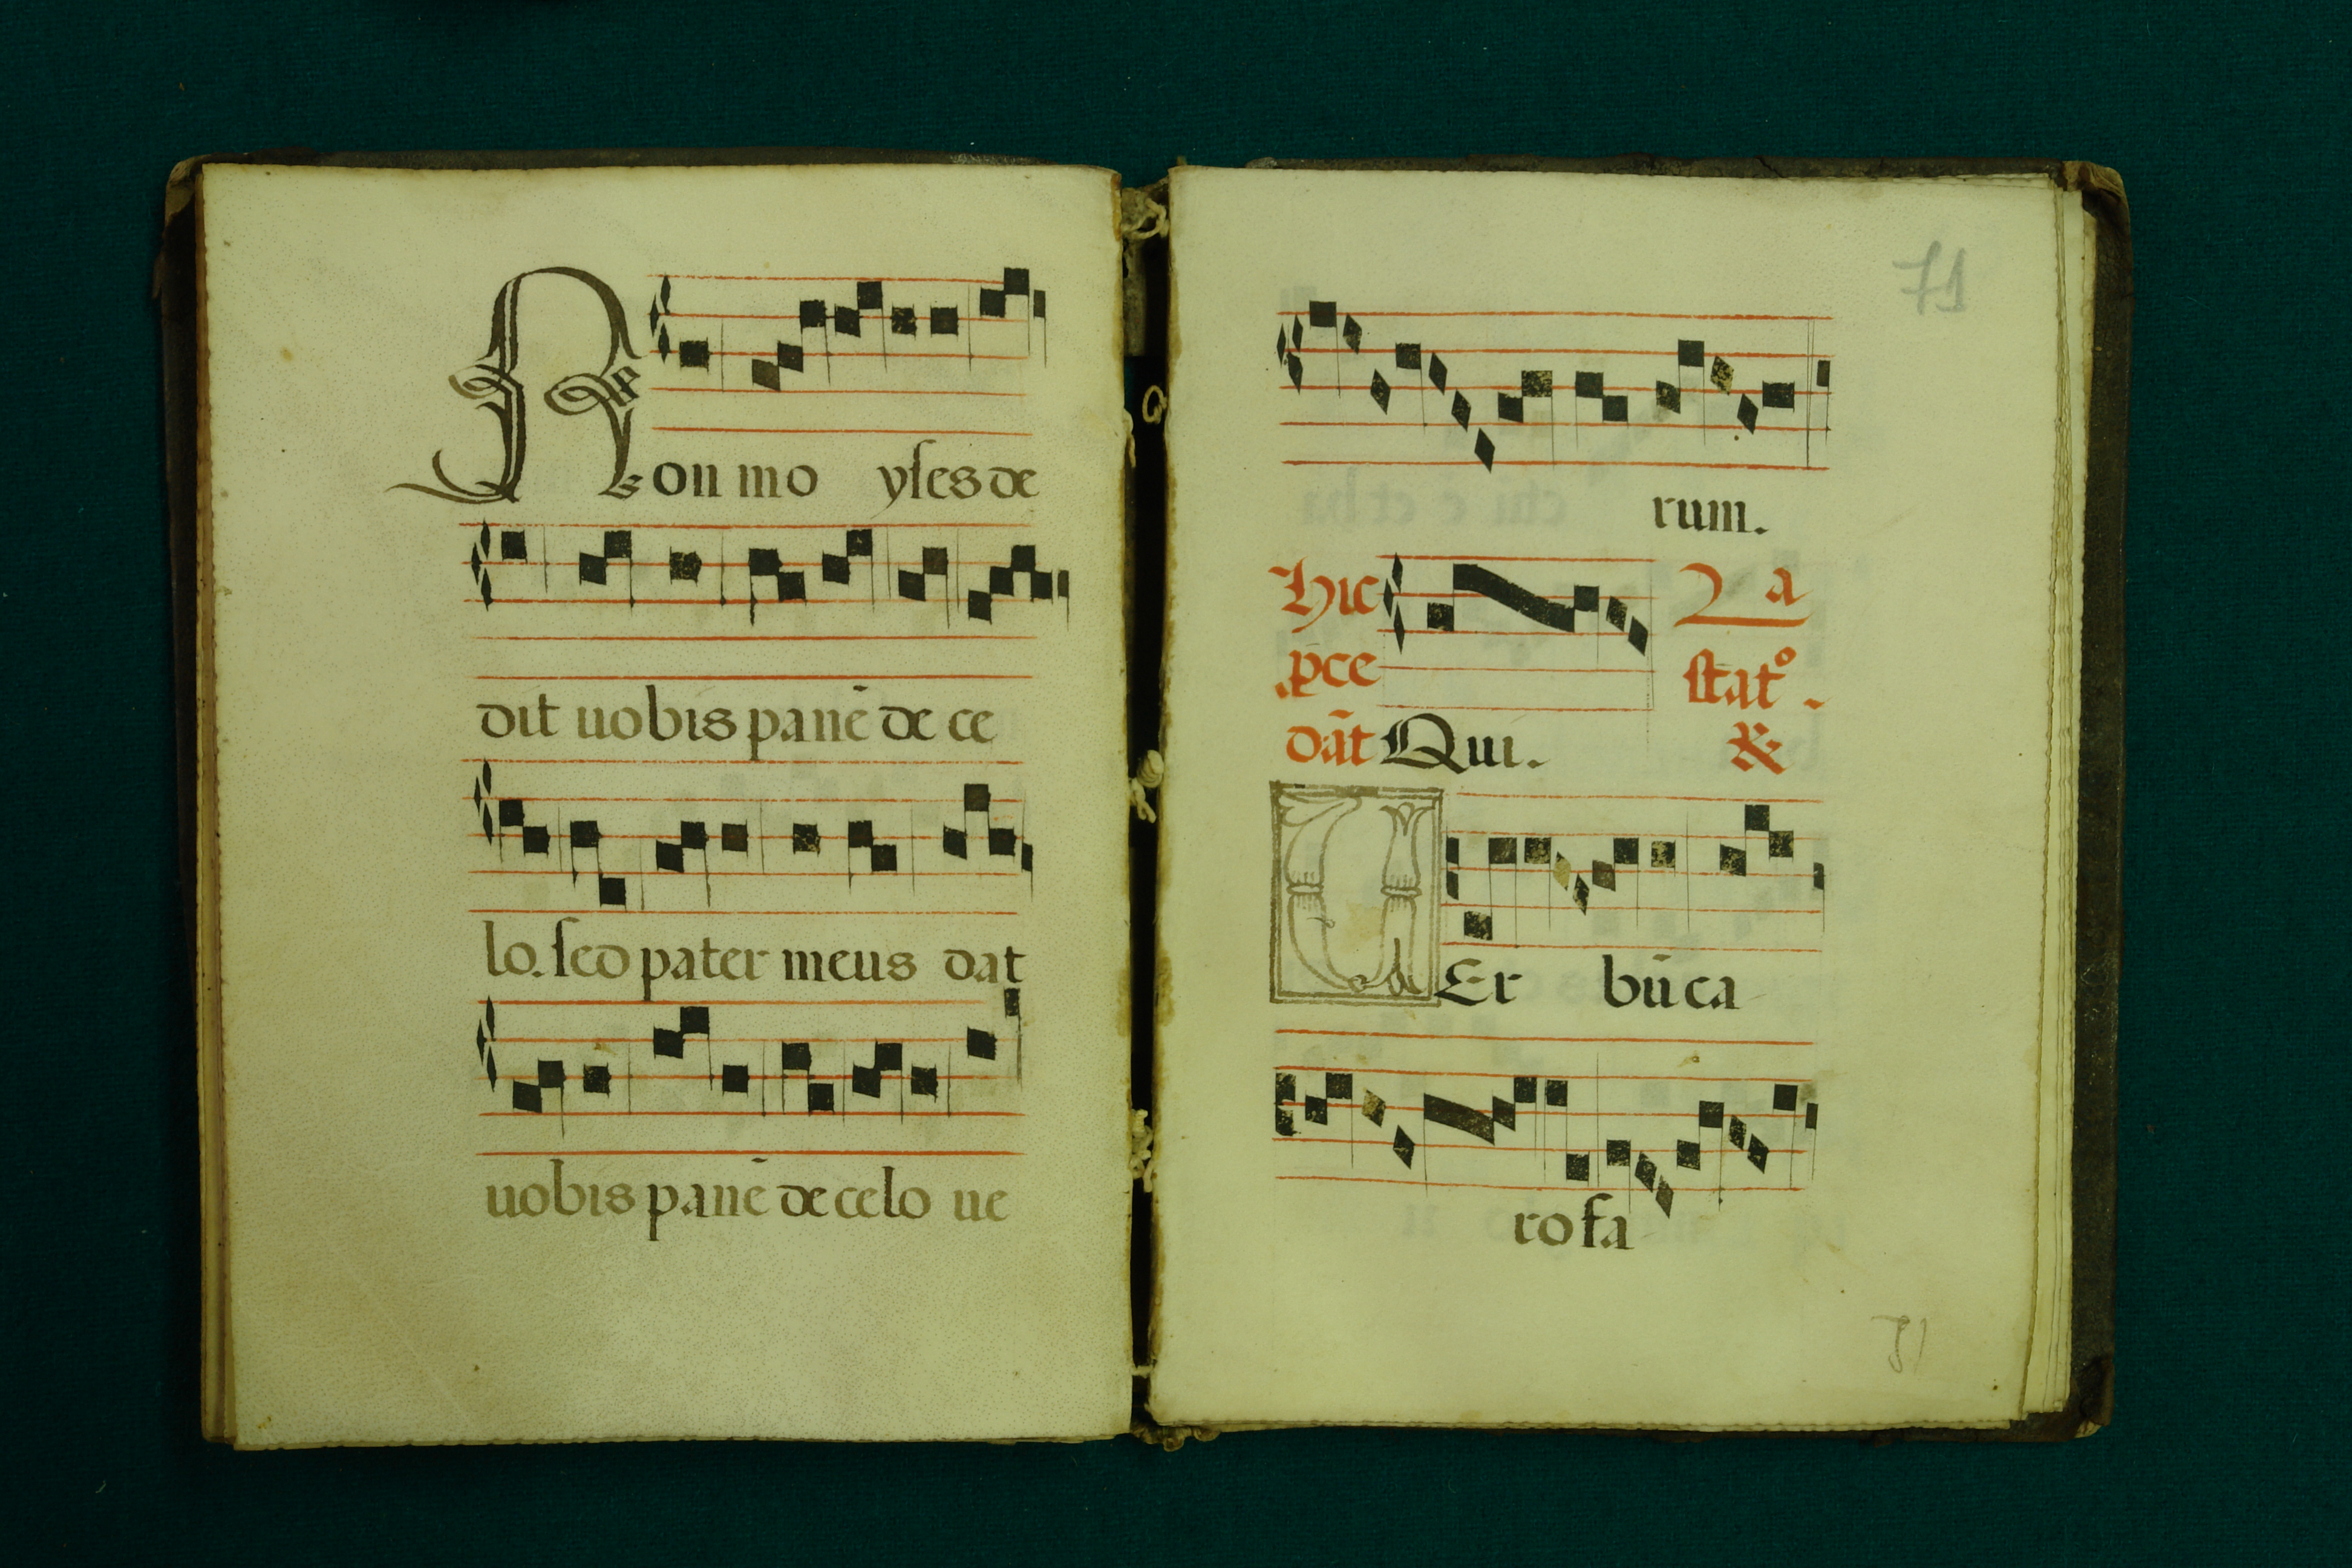 Non mo yſes de
dit uobis panē de ce
lo. ſed pater meus dat
uobis panē de celo ue
71
rum.
Hic
p̄ce
dāt Qui.
ſtat°.
&
UEr bū ca
ro fa